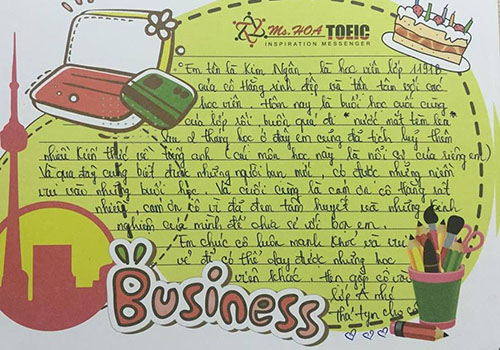 Ms.HOA TOEIC
INSPIRATION MESSENGER
Em tên là Kim Ngân là học viên lớp
của cô Hằng xinh đẹp và tận tâm với các
học viên. Hôm nay là buổi học cuối cùng
của lớp rồi, buồn quá đi "nước mắt tèm lem"
Sau 2 tháng học ở đây em cũng đã tích luỹ thêm
nhiều kiến thức về tiếng anh (cái môn học này là nỗi sợ của riêng em)
Và qua đây cũng biết được những người bạn mới, có được những niềm
vui vào những buổi học. Và cuối cùng là cảm ơn cô Hằng rất
nhiều, cảm ơn cô vì đã đem tâm huyết và những kinh
nghiệm của mình để chia sẻ với bọn em.
Em chúc cô luôn mạnh khoẻ và vui
vẻ để có thể dạy được những học
viên khác. Hẹn gặp cô vào
lớp A nhé
Business